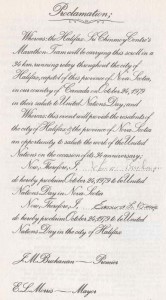 Proclamation;
Whereas the Halifax Sri Chinmoy Centre's
Marathon Team will be carrying this scroll in a
34 km. running relay throughout the city of
Halifax, capital of this province of Nova Scotia,
in our country of Canada on October 24, 1979
in their salute to United Nations Day, and
Whereas this event will provide the residents of
the city of Halifax & the province of Nova Scotia
an opportunity to salute the work of the United
Nations on the occasion of its 34 anniversary;
Now, Therefore, I
do hereby proclaim October 24, 1979 to be United
Nations Day in Nova Scotia
Now, Therefore, I
do hereby proclaim October 24, 1979 to be United
Nations Day in the city of Halifax
J. M. Buchanan — Premier
E. L. Morris — Mayor